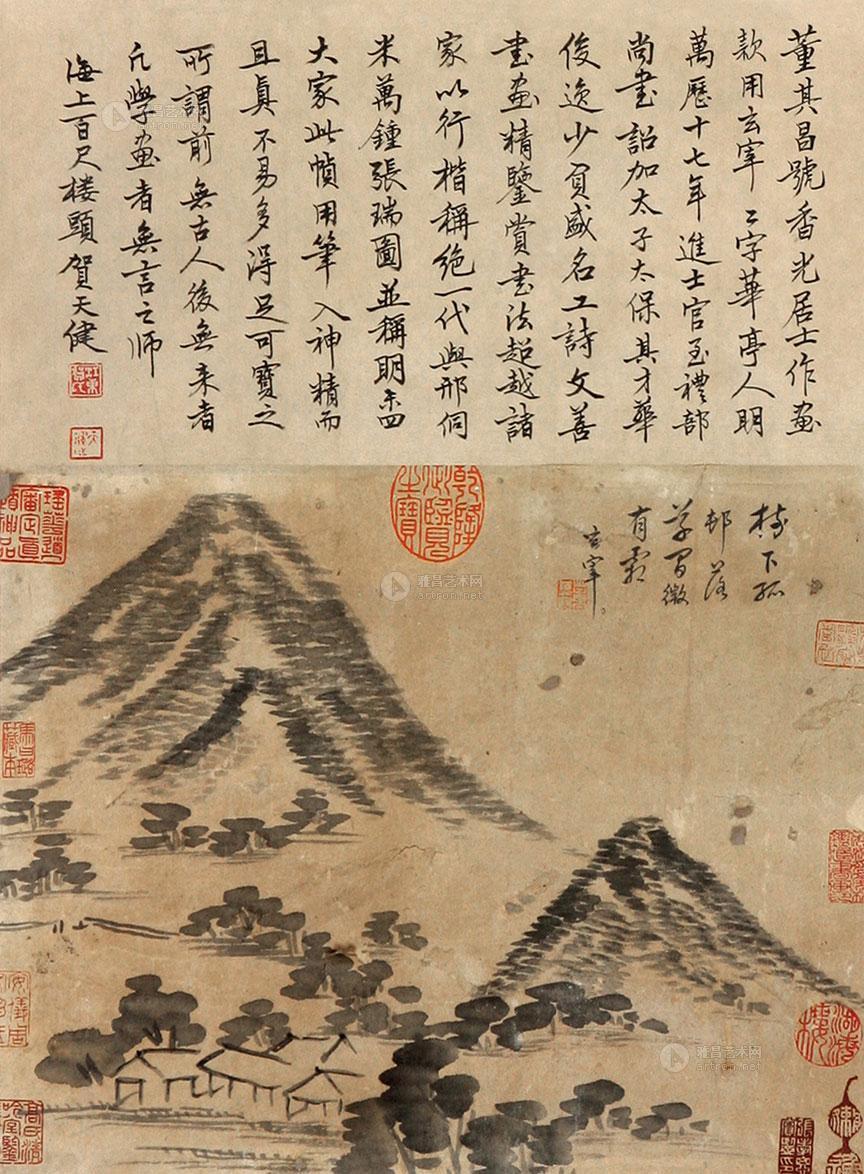 董其昌號香光居士作画
款用玄宰二字華亭人明
萬歷十七年進士官至禮部
尚書詔加太子太保其才華
俊逸少負盛名工詩文善
書画精鑒賞書法超越諸
家以行楷稱絕一代與邢侗
米萬鍾張瑞圖並稱明末四
大家此幀用筆入神精而
且真不易多得足可寶之
所謂前無古人後無来者
凡學画者無言之師
海上百尺楼頭賀天健
樹下孤
邨落
草間微
有霜
玄宰
乾隆御覽之寶
湖海樓
雅昌艺术网
artron.net
雅昌艺术网
artron.net